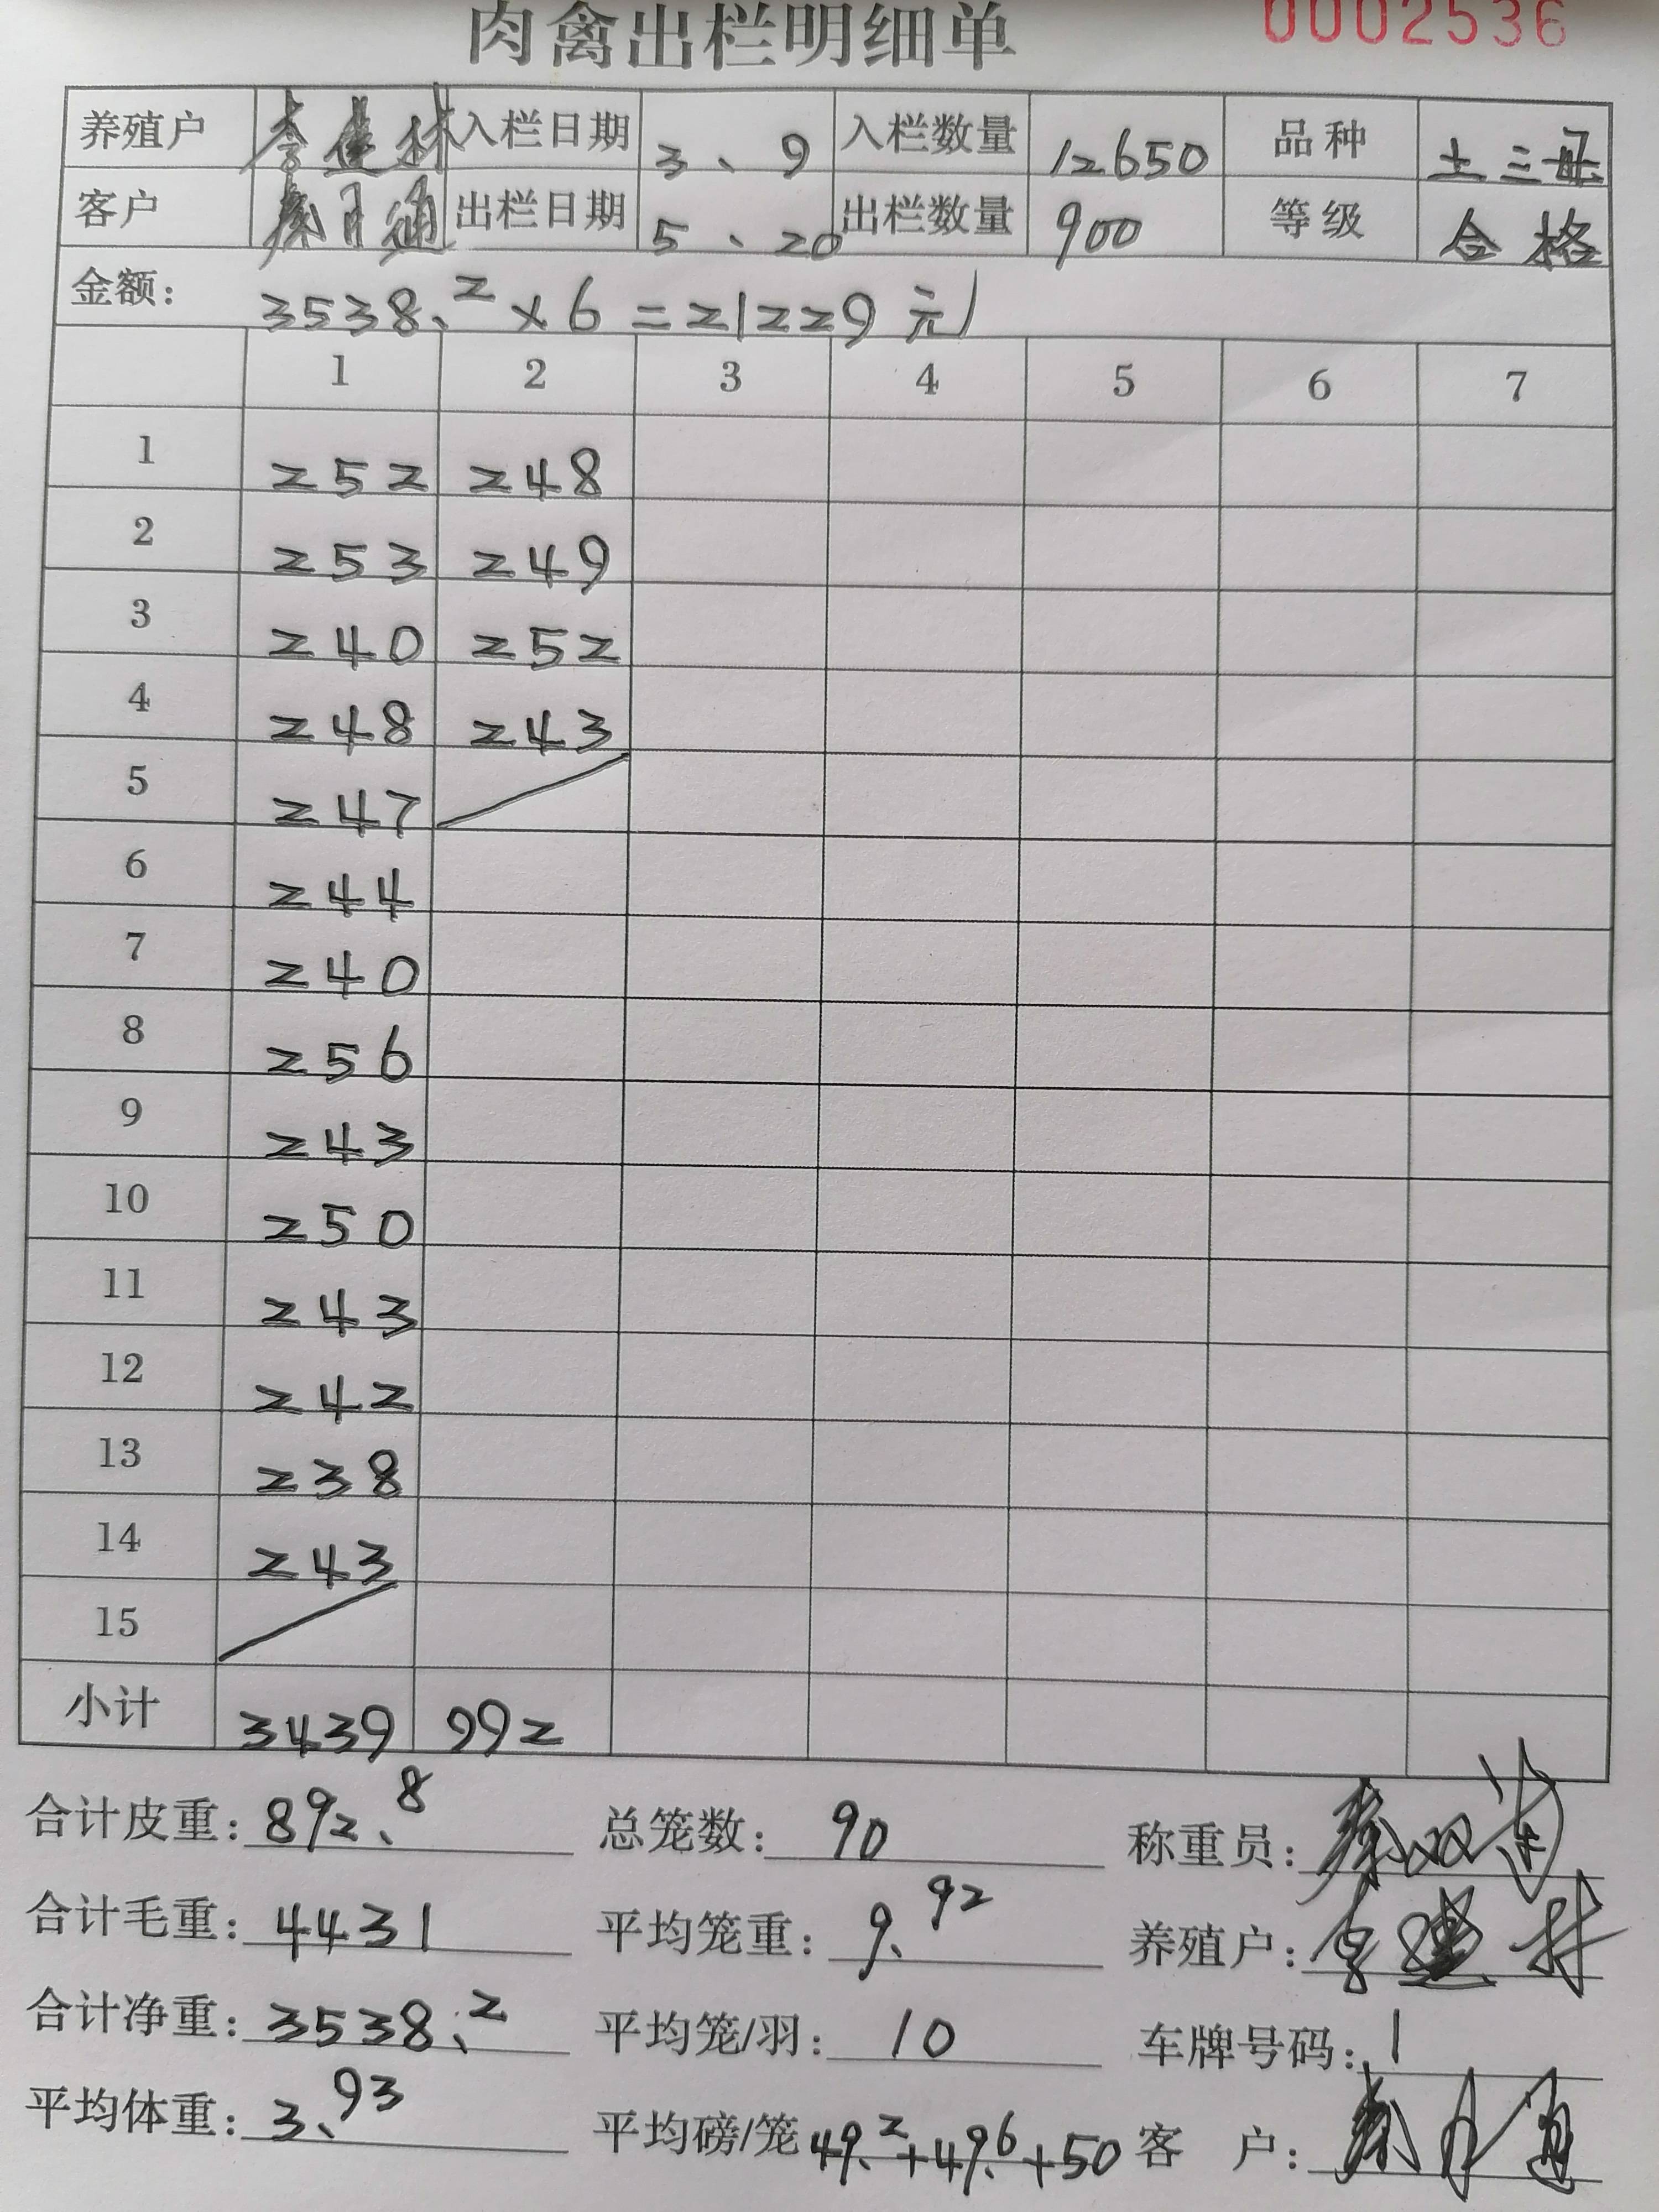 肉禽出栏明细单 0002536
养殖户 李建林 入栏日期 3、9 入栏数量 12650 品种 土三母
客户 秦月通 出栏日期 5、20 出栏数量 900 等级 合格
金额: 3538.2×6=21229元
1 2 3 4 5 6 7
1 252 248
2 253 249
3 240 252
4 248 243
5 247
6 244
7 240
8 256
9 243
10 250
11 243
12 242
13 238
14 243
15
小计 3439 992
合计皮重: 892.8 总笼数: 90 称重员:
合计毛重: 4431 平均笼重: 9.92 养殖户:
合计净重: 3538.2 平均笼/羽: 10 车牌号码: 1
平均体重: 3.93 平均磅/笼 49.2+49.6+50 客户: